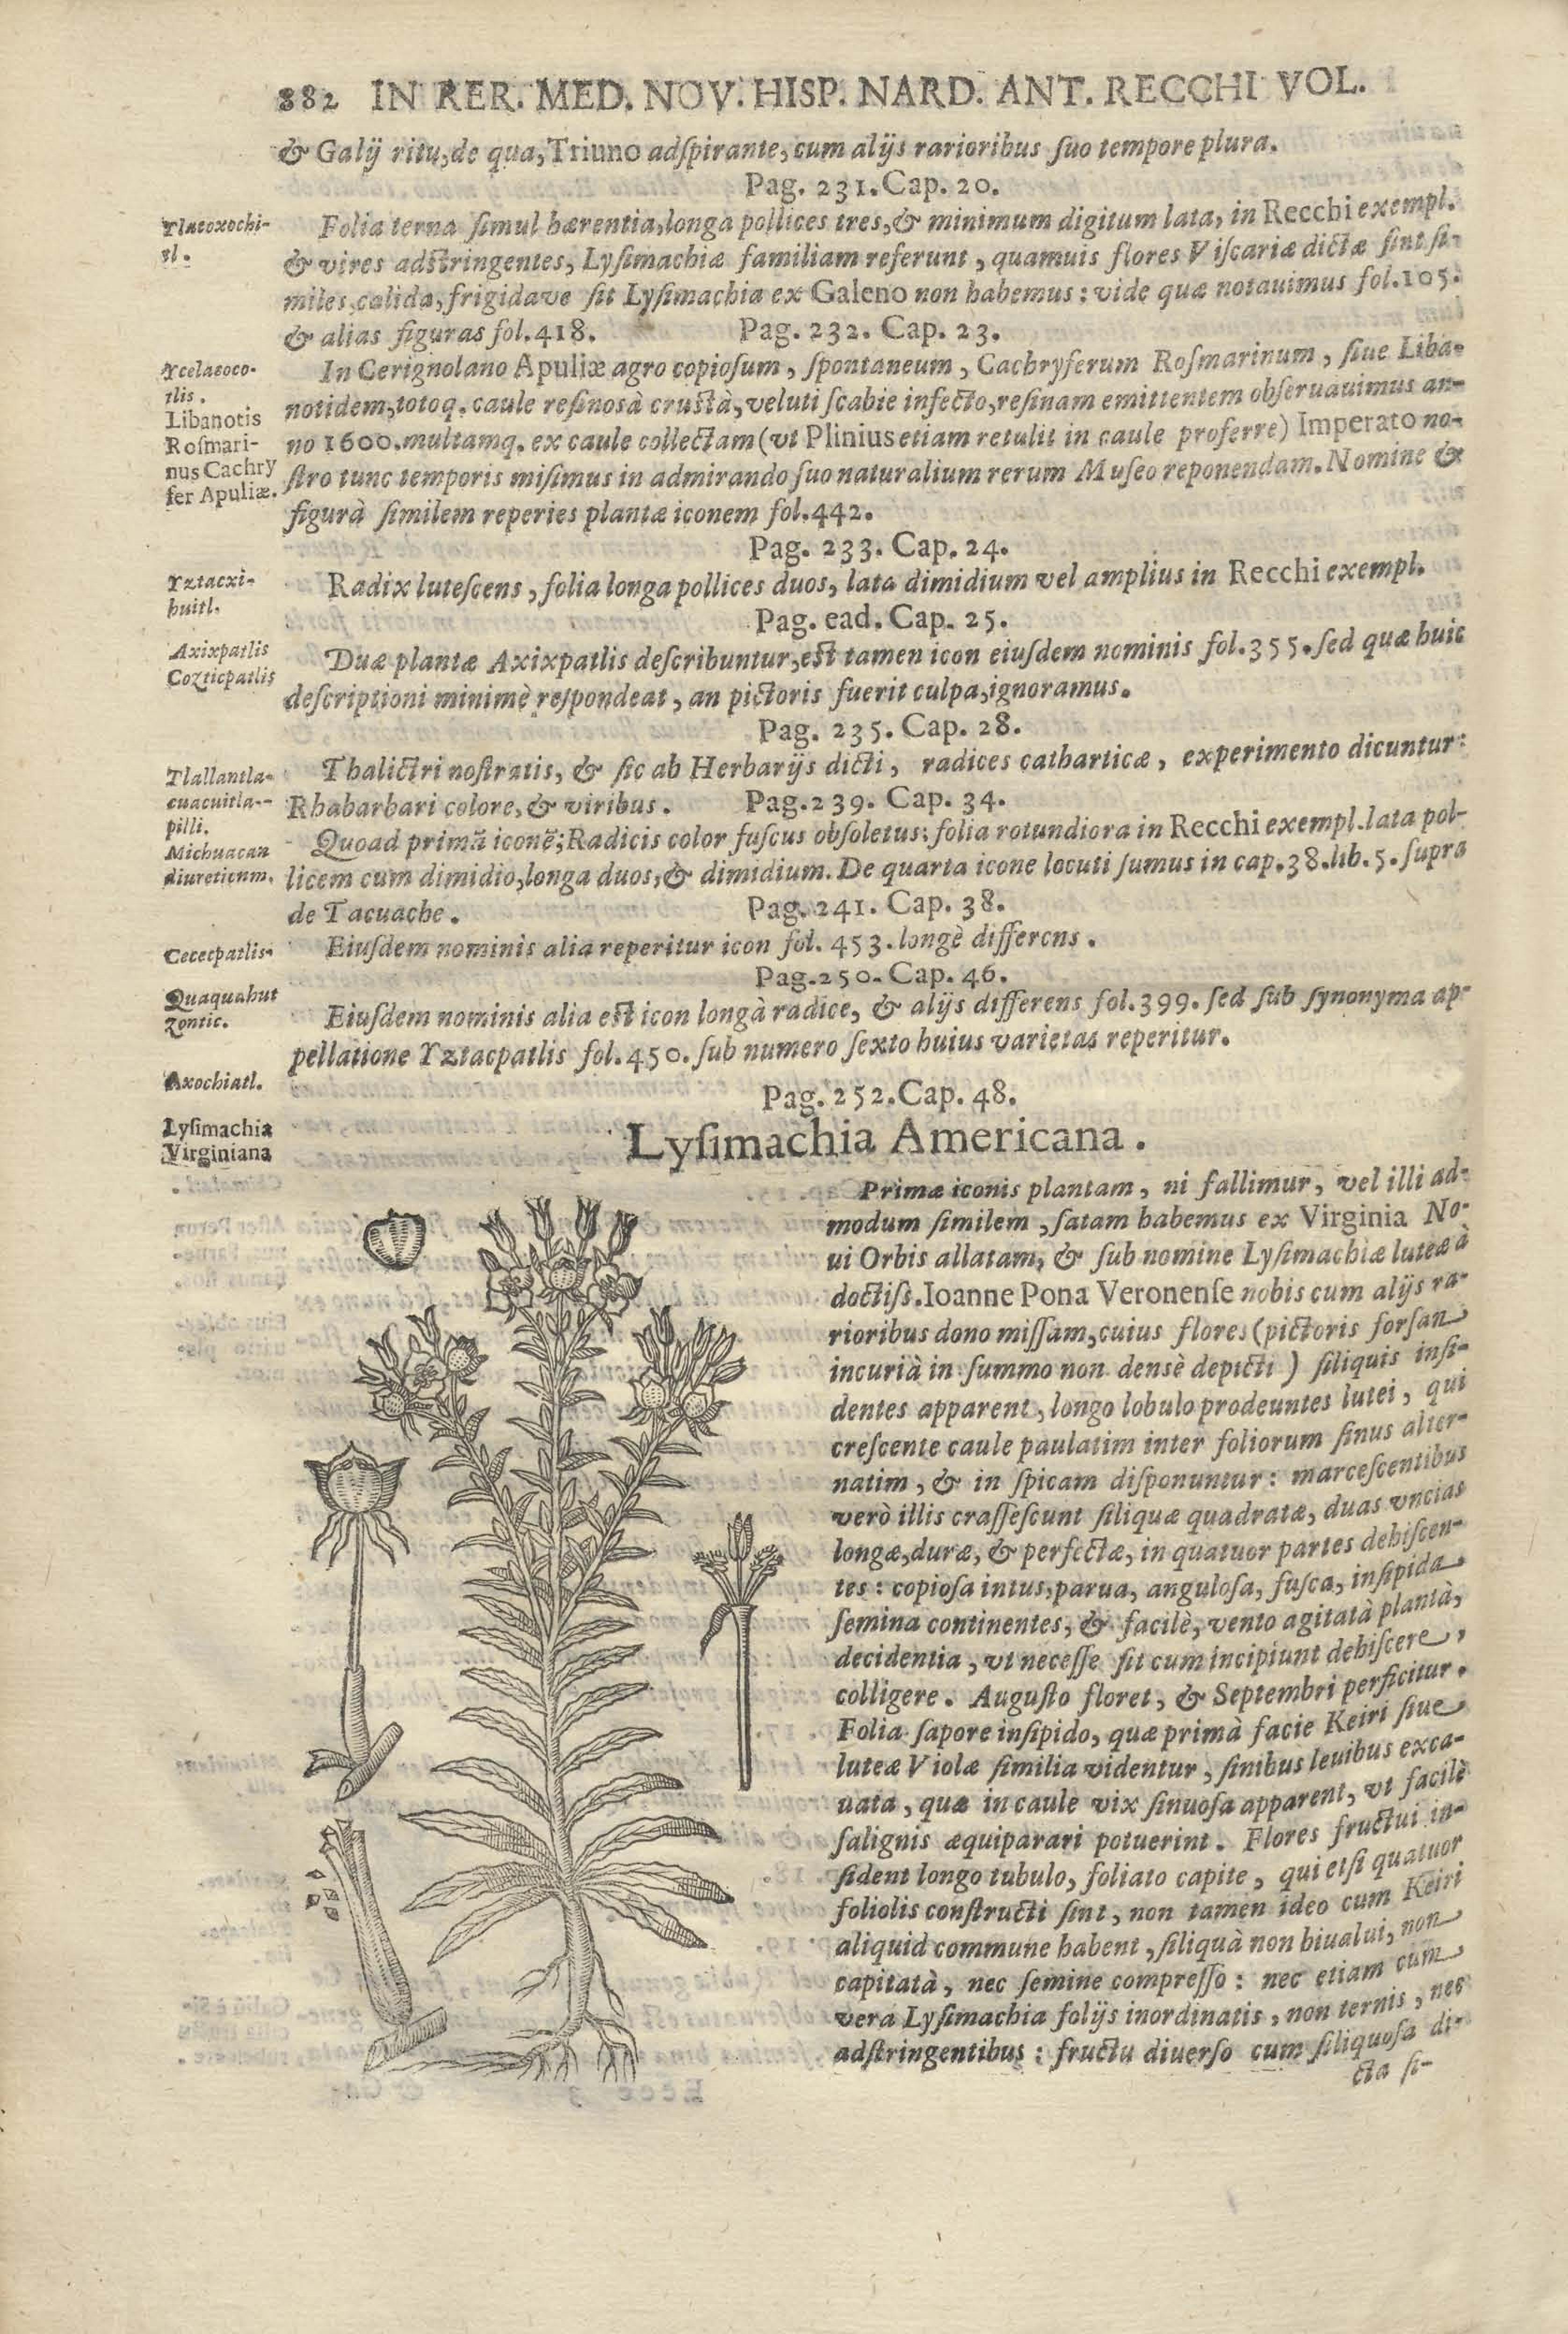 882 IN RER. MED. NOV. HISP. NARD. ANT. RECCHI VOL.
& Galij ritu, de qua, Triuno adſpirante, cum alijs rarioribus ſuo tempore plura.
Pag. 231. Cap. 20.
Tlacoxochi-
tl.
Folia terna ſimul hærentia, longa pollices tres, & minimum digitum lata, in Recchi exempl.
& vires adſtringentes, Lyſimachiæ familiam referunt, quamuis flores Viſcariæ dictæ ſint ſi-
miles, calida, frigidave ſit Lyſimachia ex Galeno non habemus: vide quæ notauimus fol. 105.
& alias figuras fol. 418. Pag. 232. Cap. 23.
Ycelacoco-
tlis.
Libanotis
Roſmari-
nus Cachry
fer Apuliæ.
In Cerignolano Apuliæ agro copioſum, ſpontaneum, Cachryferum Roſmarinum, ſiue Liba-
notidem, totoq. caule reſinosà cruſtà, veluti ſcabie infecto, reſinam emittentem obſeruauimus an-
no 1600. multamq. ex caule collectam (vt Plinius etiam retulit in caule proferre) Imperato no-
ſtro tunc temporis miſimus in admirando ſuo naturalium rerum Muſeo reponendam. Nomine &
figurà ſimilem reperies plantæ iconem fol. 442.
Pag. 233. Cap. 24.
Yztacxi-
huitl.
Radix luteſcens, folia longa pollices duos, lata dimidium vel amplius in Recchi exempl.
Pag. ead. Cap. 25.
Axixpatlis
Cozticpatlis
Duæ plantæ Axixpatlis deſcribuntur, eſt tamen icon eiuſdem nominis fol. 355. ſed quæ huic
deſcriptioni minimè reſpondeat, an pictoris fuerit culpa, ignoramus.
Pag. 235. Cap. 28.
Tlallantla-
cuacuitla-
pilli.
Thalictri noſtratis, & ſic ab Herbarijs dicti, radices catharticæ, experimento dicuntur:
Rhabarbari colore, & viribus. Pag. 239. Cap. 34.
Michuacan
diureticum.
Quoad primã iconē; Radicis color fuſcus obſoletus: folia rotundiora in Recchi exempl. lata pol-
licem cum dimidio, longa duos, & dimidium. De quarta icone locuti ſumus in cap. 38. lib. 5. ſupra
de Tacuache. Pag. 241. Cap. 38.
Cececpatlis.
Eiuſdem nominis alia reperitur icon fol. 453. longè differens.
Pag. 250. Cap. 46.
Quaquahut
zontic.
Eiuſdem nominis alia eſt icon longà radice, & alijs differens fol. 399. ſed ſub ſynonyma ap-
pellatione Yztacpatlis fol. 450. ſub numero ſexto huius varietas reperitur.
Axochiatl.
Pag. 252. Cap. 48.
Lyſimachia
Virginiana
Lyſimachia Americana.
Primæ iconis plantam, ni fallimur, vel illi ad-
modum ſimilem, ſatam habemus ex Virginia No-
ui Orbis allatam, & ſub nomine Lyſimachiæ luteæ à
doctiſs. Ioanne Pona Veronenſe nobis cum alijs ra-
rioribus dono miſſam, cuius flores (pictoris forſan
incurià in ſummo non denſè depicti) ſiliquis inſi-
dentes apparent, longo lobulo prodeuntes lutei, qui
creſcente caule paulatim inter foliorum ſinus alter-
natim, & in ſpicam diſponuntur: marceſcentibus
verò illis craſſeſcunt ſiliquæ quadratæ, duas vncias
longæ, duræ, & perfectæ, in quatuor partes dehiſcen-
tes: copioſa intus, parua, anguloſa, fuſca, inſipida
ſemina continentes, & facilè, vento agitatà plantà,
decidentia, vt neceſſe ſit cum incipiunt dehiſcere,
colligere. Auguſto floret, & Septembri perficitur.
Folia ſapore inſipido, quæ primà facie Keiri ſiue
luteæ Violæ ſimilia videntur, ſinibus leuibus exca-
uata, quæ in caule vix ſinuoſa apparent, vt facilè
ſalignis æquiparari potuerint. Flores fructui in-
ſident longo tubulo, foliato capite, qui etſi quatuor
foliolis conſtructi ſint, non tamen ideo cum Keiri
aliquid commune habent, ſiliquà non biualui, non
capitatà, nec ſemine compreſſo: nec etiam cum
vera Lyſimachia folijs inordinatis, non ternis, nec
adſtringentibus: fructu diuerſo cum ſiliquoſa di-
cta ſi-